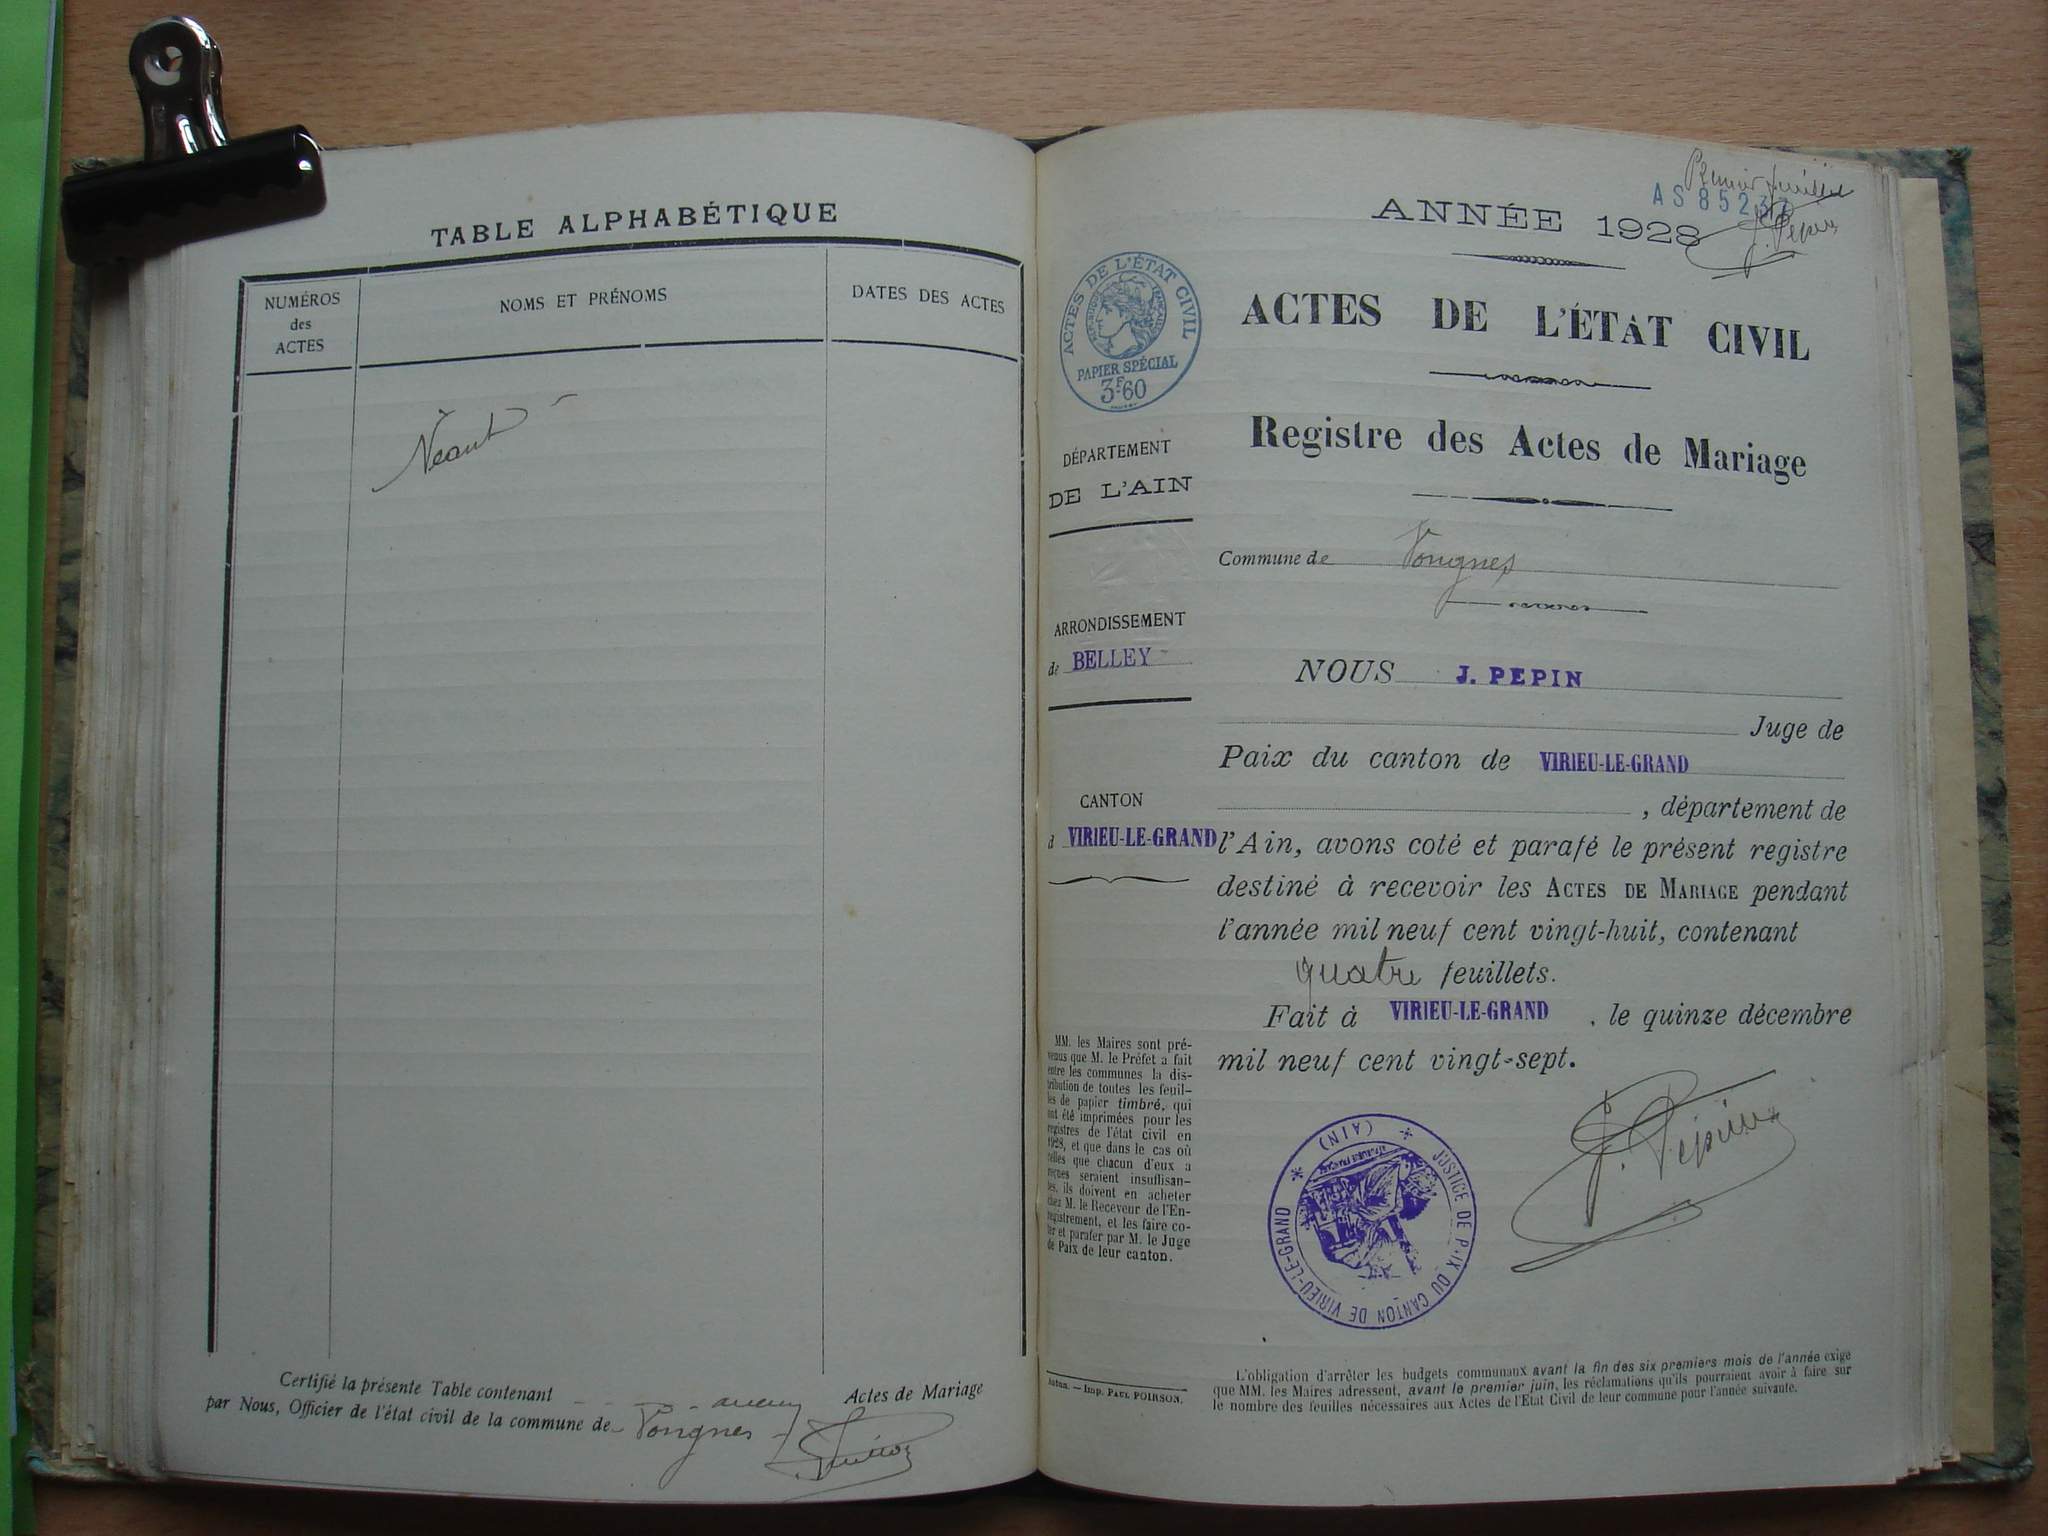 TABLE ALPHABÉTIQUE
NUMÉROS
des
ACTES
NOMS ET PRÉNOMS
DATES DES ACTES
Néant -
Certifié la présente Table contenant - - - aucun Actes de Mariage
par Nous, Officier de l'état civil de la commune de Vongnes -
Premier feuillet
AS 8523
J. Pepin
ANNÉE 1928
ACTES DE L'ÉTAT CIVIL
PAPIER SPÉCIAL
3F60
ACTES DE L'ÉTAT CIVIL
Registre des Actes de Mariage
DÉPARTEMENT
DE L'AIN
Commune de Vongnes
ARRONDISSEMENT
de BELLEY
NOUS J. PEPIN
Juge de
Paix du canton de VIRIEU-LE-GRAND
CANTON
d VIRIEU-LE-GRAND
, département de
l'Ain, avons coté et parafé le présent registre
destiné à recevoir les ACTES DE MARIAGE pendant
l'année mil neuf cent vingt-huit, contenant
quatre feuillets.
Fait à VIRIEU-LE-GRAND , le quinze décembre
mil neuf cent vingt-sept.
MM. les Maires sont pré-
venus que M. le Préfet a fait
entre les communes la dis-
tribution de toutes les feuil-
les de papier timbré, qui
ont été imprimées pour les
registres de l'état civil en
1928, et que dans le cas où
celles que chacun d'eux a
reçues seraient insuffisan-
tes, ils doivent en acheter
chez M. le Receveur de l'En-
registrement, et les faire co-
ter et parafer par M. le Juge
de Paix de leur canton.
J. Pepin
JUSTICE DE PAIX DU CANTON DE VIRIEU-LE-GRAND
* (AIN) *
Autun. — Imp. PAUL POIRSON.
L'obligation d'arrêter les budgets communaux avant la fin des six premiers mois de l'année exige
que MM. les Maires adressent, avant le premier juin, les réclamations qu'ils pourraient avoir à faire sur
le nombre des feuilles nécessaires aux Actes de l'Etat Civil de leur commune pour l'année suivante.